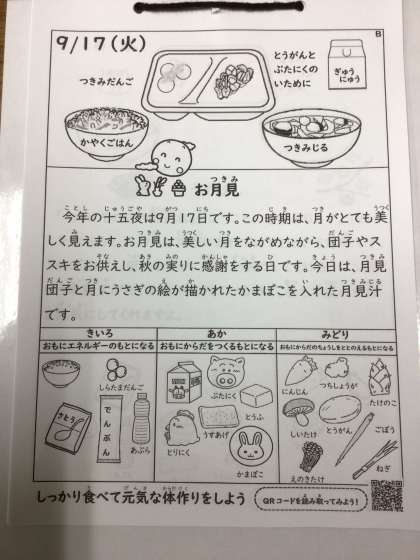 B
9/17(火)
つきみだんご
とうがんと
ぶたにくの
いために
ぎゅう
にゅう
かやくごはん
つきみじる
お月見
今年の十五夜は9月17日です。この時期は、月がとても美
しく見えます。お月見は、美しい月をながめながら、団子やス
スキをお供えし、秋の実りに感謝をする日です。今日は、月見
団子と月にうさぎの絵が描かれたかまぼこを入れた月見汁
です。
きいろ
おもにエネルギーのもとになる
あか
おもにからだをつくるもとになる
みどり
おもにからだのちょうしをととのえるもとになる
しらたまだんご
さとう
でんぷん
あぶら
ぶたにく
とうふ
うすあげ
とりにく
かまぼこ
にんじん
つちしょうが
たけのこ
しいたけ
とうがん
ごぼう
えのきたけ
ねぎ
しっかり食べて元気な体作りをしよう
QRコードを読み取ってみよう!